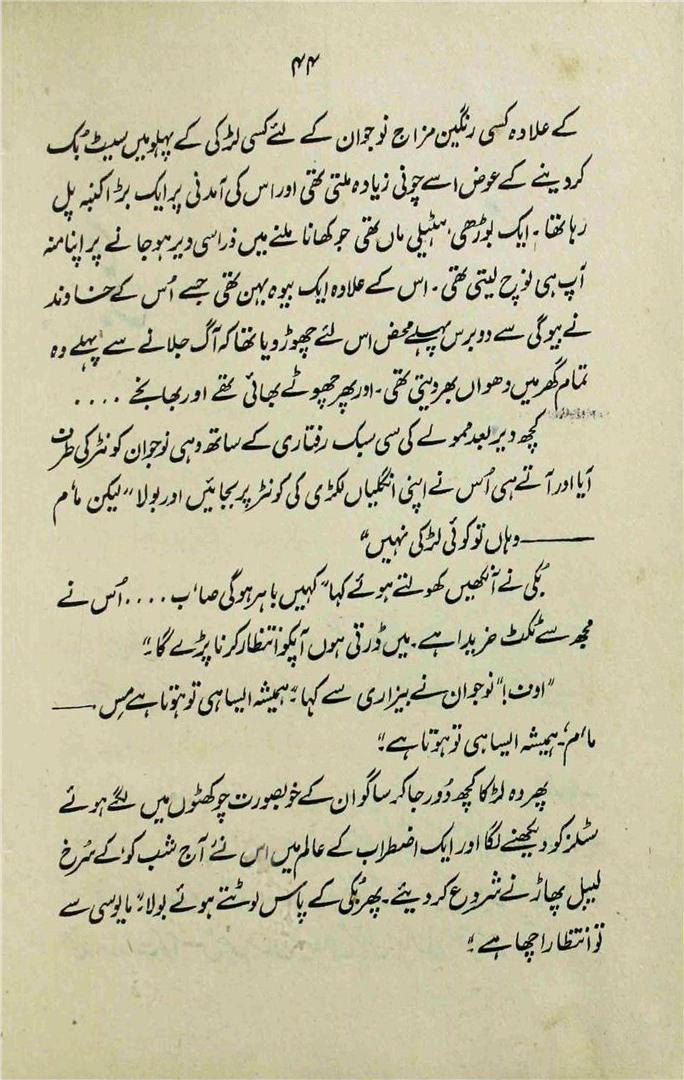 ۴۴
کے علاوہ کسی رنگین مزاج نوجوان کے لئے کسی لڑکی کے پہلو میں سیٹ بک
کر دینے کے عوض اسے چونی زیادہ ملتی تھی اور اس کی آمدنی پر ایک بڑا کنبہ پل
رہا تھا۔ ایک بوڑھی، ہٹیلی ماں تھی جو کھانا ملنے میں ذرا سی دیر ہو جانے پر اپنا منہ
آپ ہی نوچ لیتی تھی۔ اس کے علاوہ ایک بیوہ بہن تھی جسے اُس کے خاوند
نے بیوگی سے دو برس پہلے محض اس لئے چھوڑ دیا تھا کہ آگ جلانے سے پہلے وہ
تمام گھر میں دھواں بھر دیتی تھی۔ اور پھر چھوٹے بھائی تھے اور بھانجے ....
کچھ دیر بعد ممولے کی سی سبک رفتاری کے ساتھ وہی نوجوان کونٹر کی طرف
آیا اور آتے ہی اُس نے اپنی انگلیاں لکڑی کی کونٹر پر بجائیں اور بولا "لیکن مام
——— وہاں تو کوئی لڑکی نہیں"
بُکی نے آنکھیں کھولتے ہوئے کہا "کہیں باہر ہوگی صاب .... اُس نے
مجھ سے ٹکٹ خریدا ہے۔ میں ڈرتی ہوں آپکو انتظار کرنا پڑے گا۔"
"اوف!" نوجوان نے بیزاری سے کہا۔ "ہمیشہ ایسا ہی تو ہوتا ہے مِس ۔——
مام، ہمیشہ ایسا ہی تو ہوتا ہے۔"
پھر وہ لڑکا کچھ دُور جا کر ساگوان کے خوبصورت چوکھٹوں میں لگے ہوئے
سٹلز کو دیکھنے لگا اور ایک اضطراب کے عالم میں اس نے 'آج شب کو' کے سُرخ
لیبل پھاڑنے شروع کر دیئے۔ پھر بُکی کے پاس لوٹتے ہوئے بولا۔ "مایوسی سے
تو انتظار اچھا ہے۔"